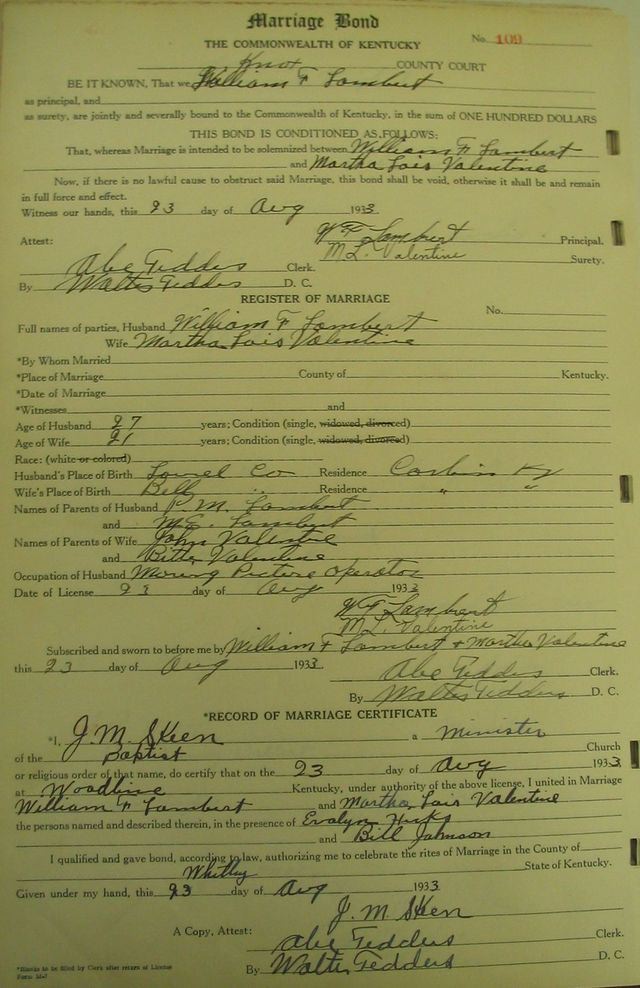 Marriage Bond
No. 109
THE COMMONWEALTH OF KENTUCKY
Knox COUNTY COURT
BE IT KNOWN, That we William F Lambert
as principal, and
as surety, are jointly and severally bound to the Commonwealth of Kentucky, in the sum of ONE HUNDRED DOLLARS
THIS BOND IS CONDITIONED AS FOLLOWS:
That, whereas Marriage is intended to be solemnized between William F Lambert
and Martha Lois Valentine
Now, if there is no lawful cause to obstruct said Marriage, this bond shall be void, otherwise it shall be and remain
in full force and effect.
Witness our hands, this 23 day of Aug 1933
W F Lambert Principal.
Attest: M. L. Valentine Surety.
Abe Tedders Clerk.
By Walter Tedders D. C.
REGISTER OF MARRIAGE
No.
Full names of parties, Husband William F Lambert
Wife Martha Lois Valentine
*By Whom Married
*Place of Marriage County of Kentucky.
*Date of Marriage
*Witnesses and
Age of Husband 27 years; Condition (single, widowed, divorced)
Age of Wife 21 years; Condition (single, widowed, divorced)
Race: (white or colored)
Husband's Place of Birth Laurel Co Residence Corbin Ky
Wife's Place of Birth Bell " Residence " "
Names of Parents of Husband P. M. Lambert
and M. E. Lambert
Names of Parents of Wife John Valentine
and Valentine
Occupation of Husband Moving Picture Operator
Date of License 23 day of Aug 1933
W F Lambert
M. L. Valentine
Subscribed and sworn to before me by William F Lambert + Martha Valentine
this 23 day of Aug 1933
Abe Tedders Clerk.
By Walter Tedders D. C.
*RECORD OF MARRIAGE CERTIFICATE
*I, J. M. Skeen a Minister
of the Baptist Church
or religious order of that name, do certify that on the 23 day of Aug 1933
at Woodbine Kentucky, under authority of the above license, I united in Marriage
William F Lambert and Martha Lois Valentine
the persons named and described therein, in the presence of Evalyn Hicks
and Bill Johnson
I qualified and gave bond, according to law, authorizing me to celebrate the rites of Marriage in the County of
Whitley State of Kentucky.
Given under my hand, this 23 day of Aug 1933
J. M. Skeen
A Copy, Attest: Abe Tedders Clerk.
By Walter Tedders D. C.
*Blanks to be filled by Clerk after return of License